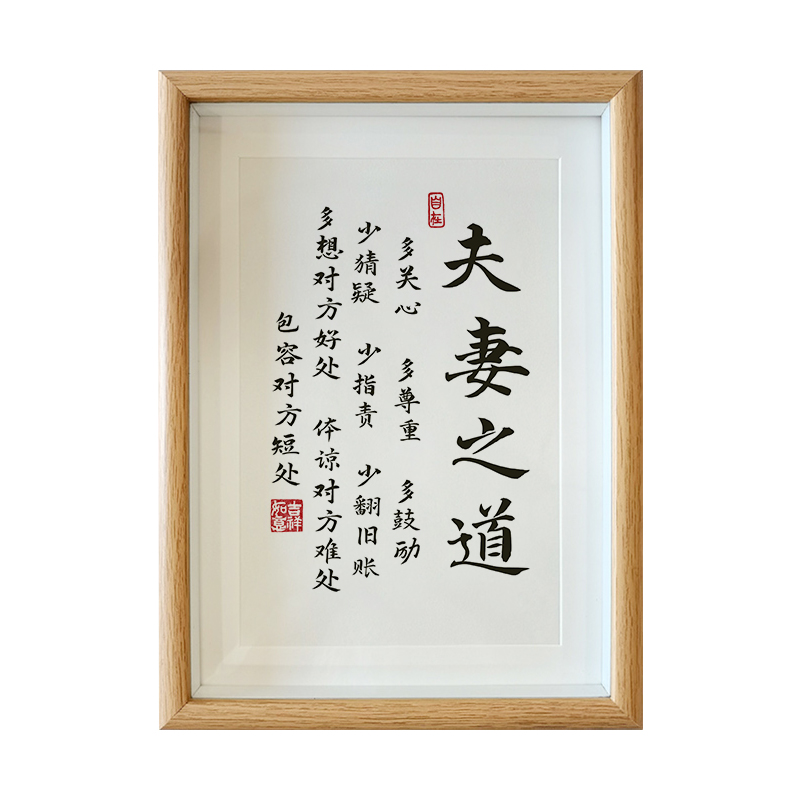 夫妻之道
自在
多关心 多尊重 多鼓励
少猜疑 少指责 少翻旧账
多想对方好处 体谅对方难处
包容对方短处
吉祥如意